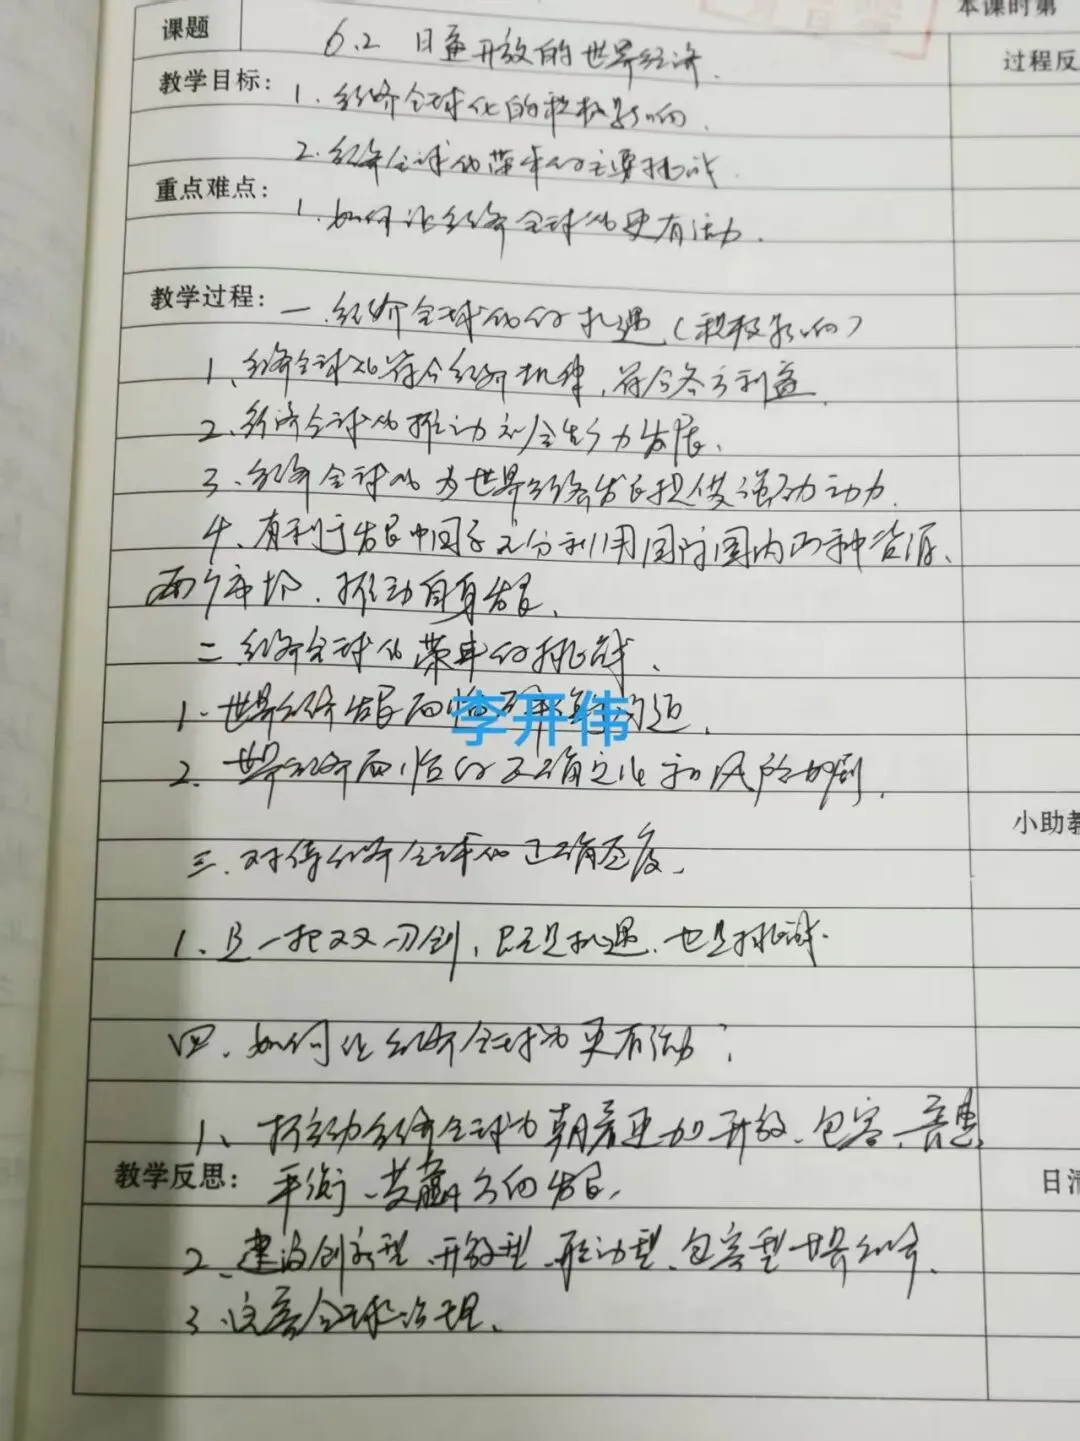 本课时第
课题
6.2 日益开放的世界经济.
过程反
教学目标:
1. 经济全球化的积极影响.
2. 经济全球化带来的主要挑战.
重点难点:
1. 如何让经济全球化更有活力.
教学过程:
一. 经济全球化的机遇 (积极影响)
1、经济全球化符合经济规律, 符合各方利益.
2、经济全球化推动社会生产力发展.
3、经济全球化为世界经济发展提供强劲动力.
4、有利于发展中国家充分利用国际国内两种资源、
两个市场, 推动自身发展.
二. 经济全球化带来的挑战.
1. 世界经济发展面临问题.
李开伟
2. 世界经济面临的不确定性和风险加剧.
小助教
三. 对待经济全球化正确态度.
1、是一把双刃剑, 既是机遇, 也是挑战.
四. 如何让经济全球化更有活力?
1、推动经济全球化朝着更加开放、包容、普惠、
教学反思:
平衡、共赢方向发展.
日清
2、建设创新型、开放型、联动型、包容型世界经济.
3.完善全球治理.